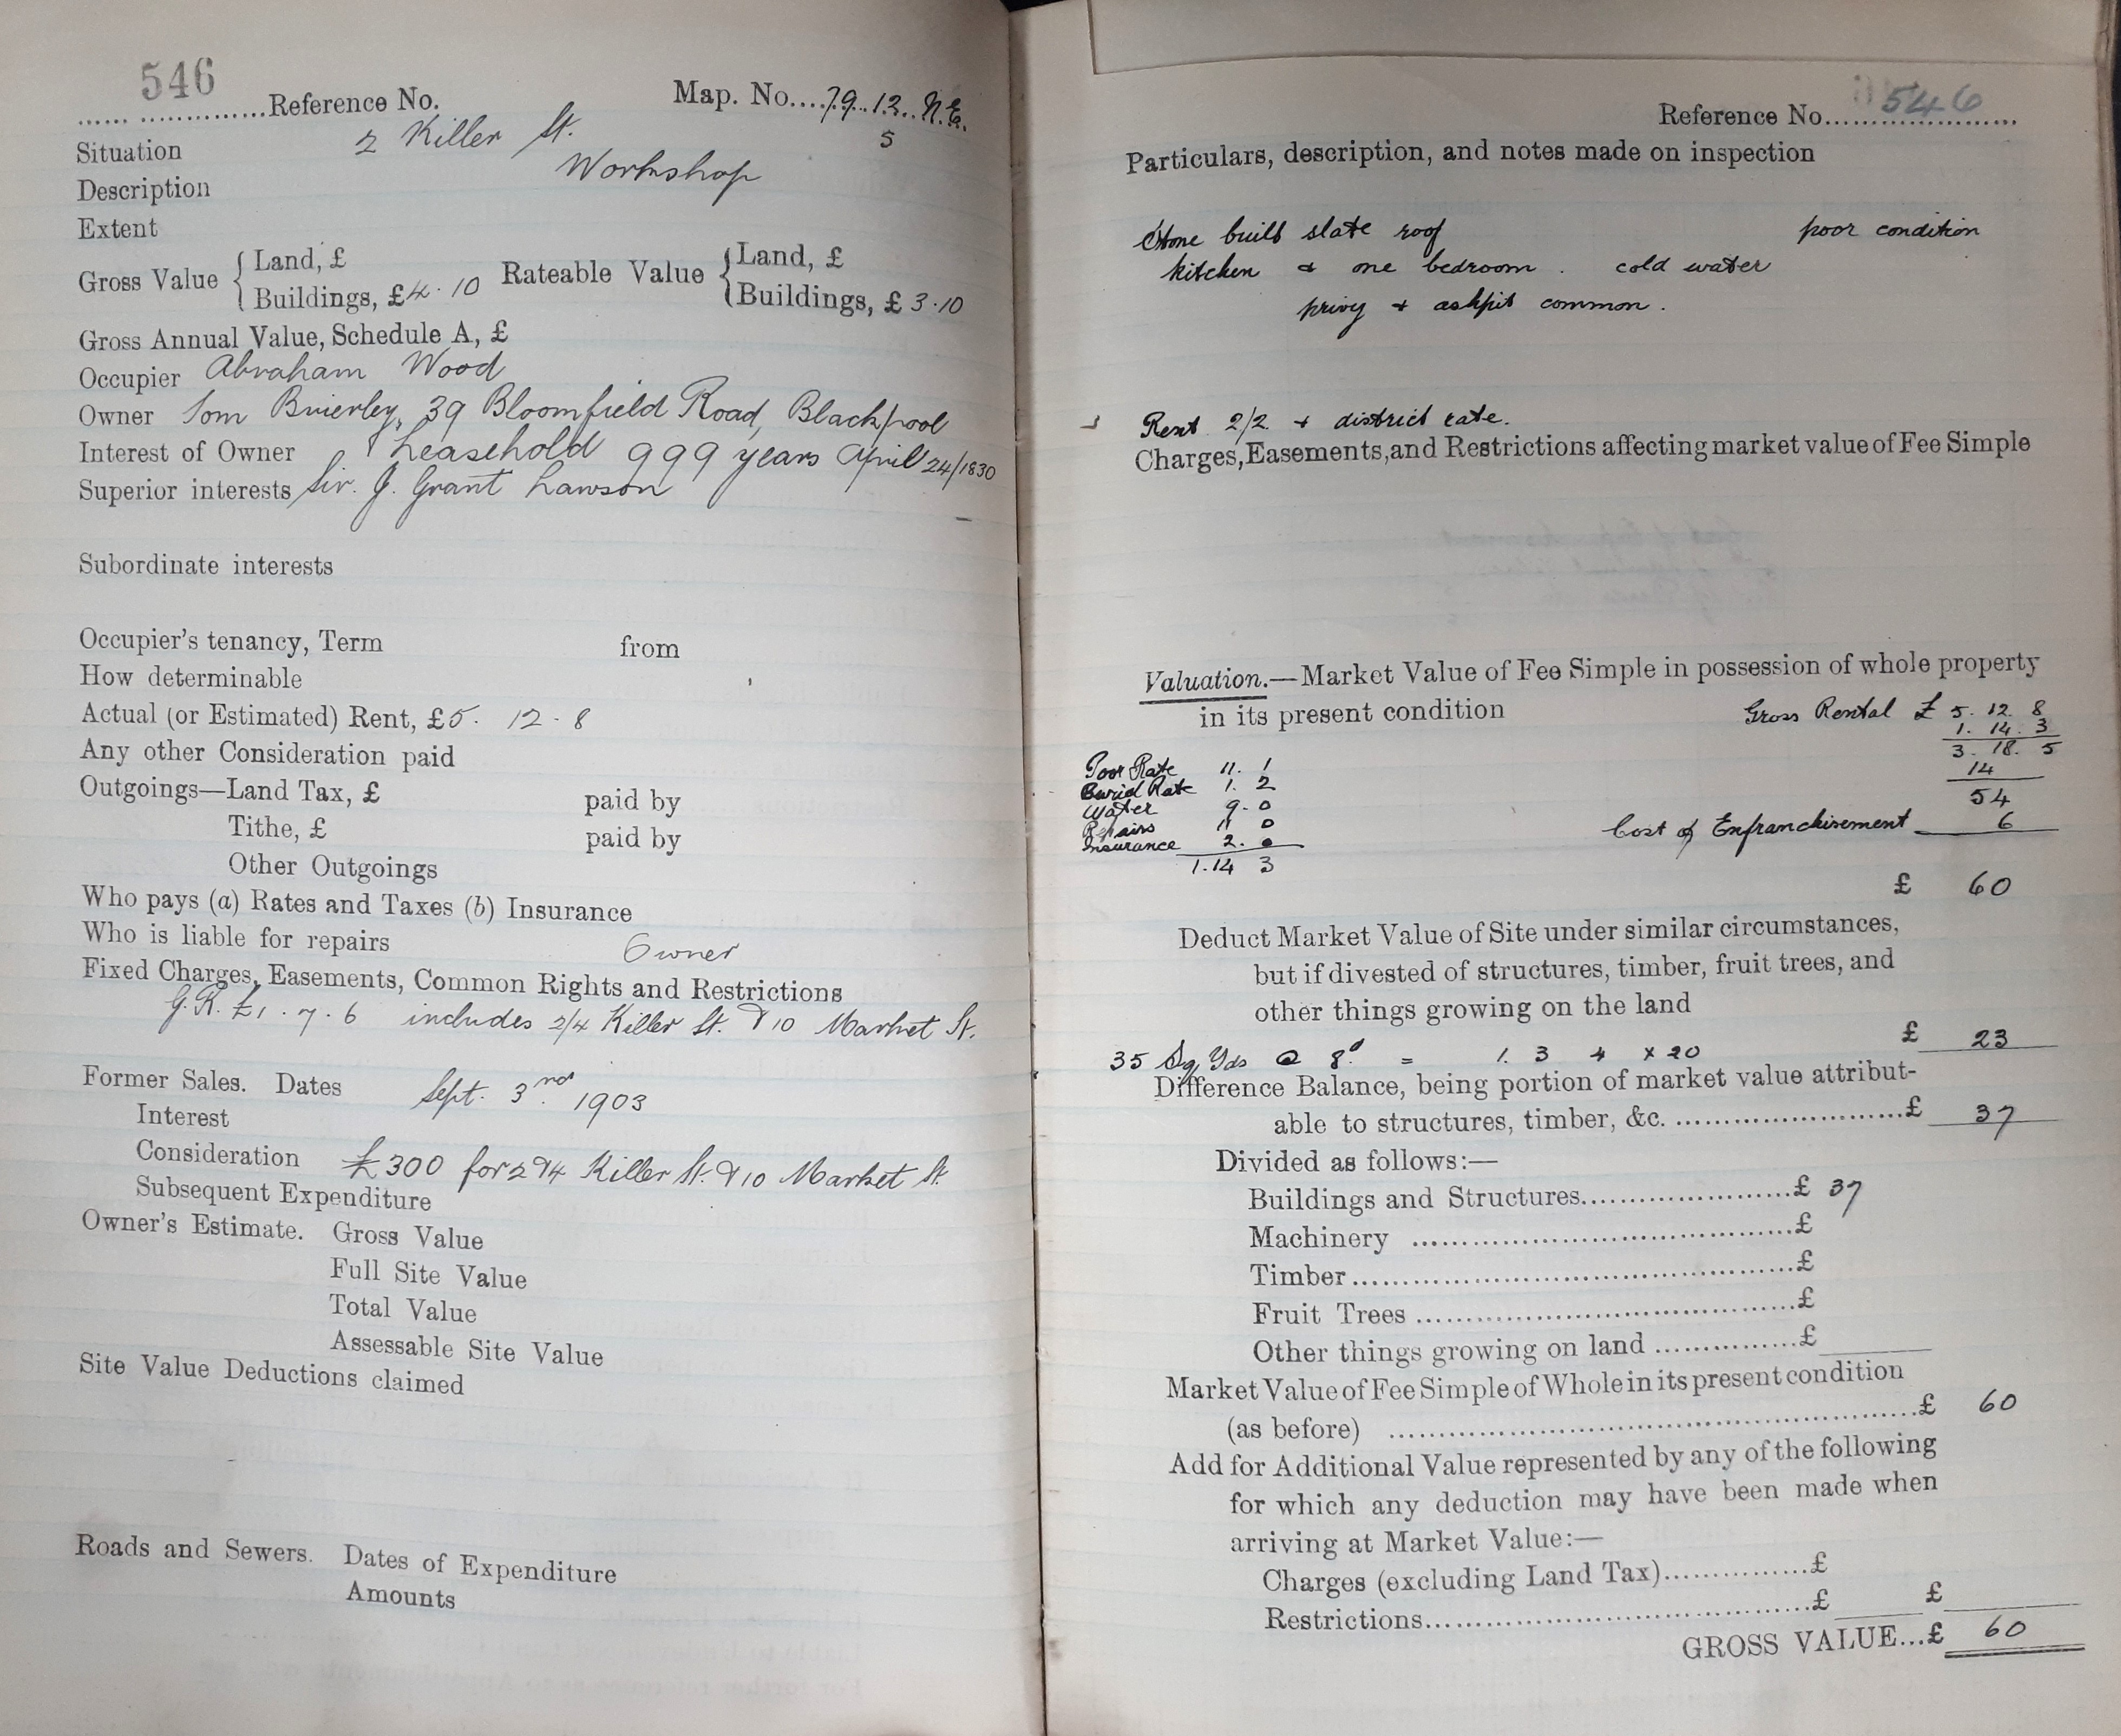 546
...... ..............Reference No. Map. No....79.12. N.E.
5
Situation 2 Killer St.
Description Workshop
Extent
Gross Value { Land, £ Rateable Value { Land, £
Buildings, £4.10 Buildings, £3.10
Gross Annual Value, Schedule A, £
Occupier Abraham Wood
Owner Tom Brierley, 39 Bloomfield Road, Blackpool
Interest of Owner Leasehold 999 years April 24/1830
Superior interests Sir. J. Grant Lawson
Subordinate interests
Occupier's tenancy, Term from
How determinable
Actual (or Estimated) Rent, £5. 12. 8
Any other Consideration paid
Outgoings—Land Tax, £ paid by
Tithe, £ paid by
Other Outgoings
Who pays (a) Rates and Taxes (b) Insurance
Who is liable for repairs Owner
Fixed Charges, Easements, Common Rights and Restrictions
G.R. £1.7.6 includes 2/4 Killer St. & 10 Market St.
Former Sales. Dates Sept. 3rd. 1903
Interest
Consideration £300 for 2 & 4 Killer St. & 10 Market St.
Subsequent Expenditure
Owner's Estimate. Gross Value
Full Site Value
Total Value
Assessable Site Value
Site Value Deductions claimed
Roads and Sewers. Dates of Expenditure
Amounts
Reference No. 546
Particulars, description, and notes made on inspection
Stone built slate roof poor condition
kitchen & one bedroom. cold water
privy & ashpit common.
Rent 2/2 + district rate.
Charges, Easements, and Restrictions affecting market value of Fee Simple
Valuation.—Market Value of Fee Simple in possession of whole property
in its present condition Gross Rental £ 5. 12. 8
1. 14. 3
3. 18. 5
Poor Rate 11. 1
14
Burial Rate 1. 2
54
Water 9. 0
Repairs 11 0
Cost of Enfranchisement 6
Insurance 2. 0
1.14 3
£ 60
Deduct Market Value of Site under similar circumstances,
but if divested of structures, timber, fruit trees, and
other things growing on the land
£ 23
35 Sq Yds @ 8d = 1. 3 4 x 20
Difference Balance, being portion of market value attribut-
able to structures, timber, &c. ..........................£ 37
Divided as follows:—
Buildings and Structures.......................£ 37
Machinery ..........................................£
Timber.................................................£
Fruit Trees ..........................................£
Other things growing on land ...............£
Market Value of Fee Simple of Whole in its present condition
(as before) ..........................................................£ 60
Add for Additional Value represented by any of the following
for which any deduction may have been made when
arriving at Market Value:—
Charges (excluding Land Tax)...............£
Restrictions..........................................£ £
GROSS VALUE...£ 60